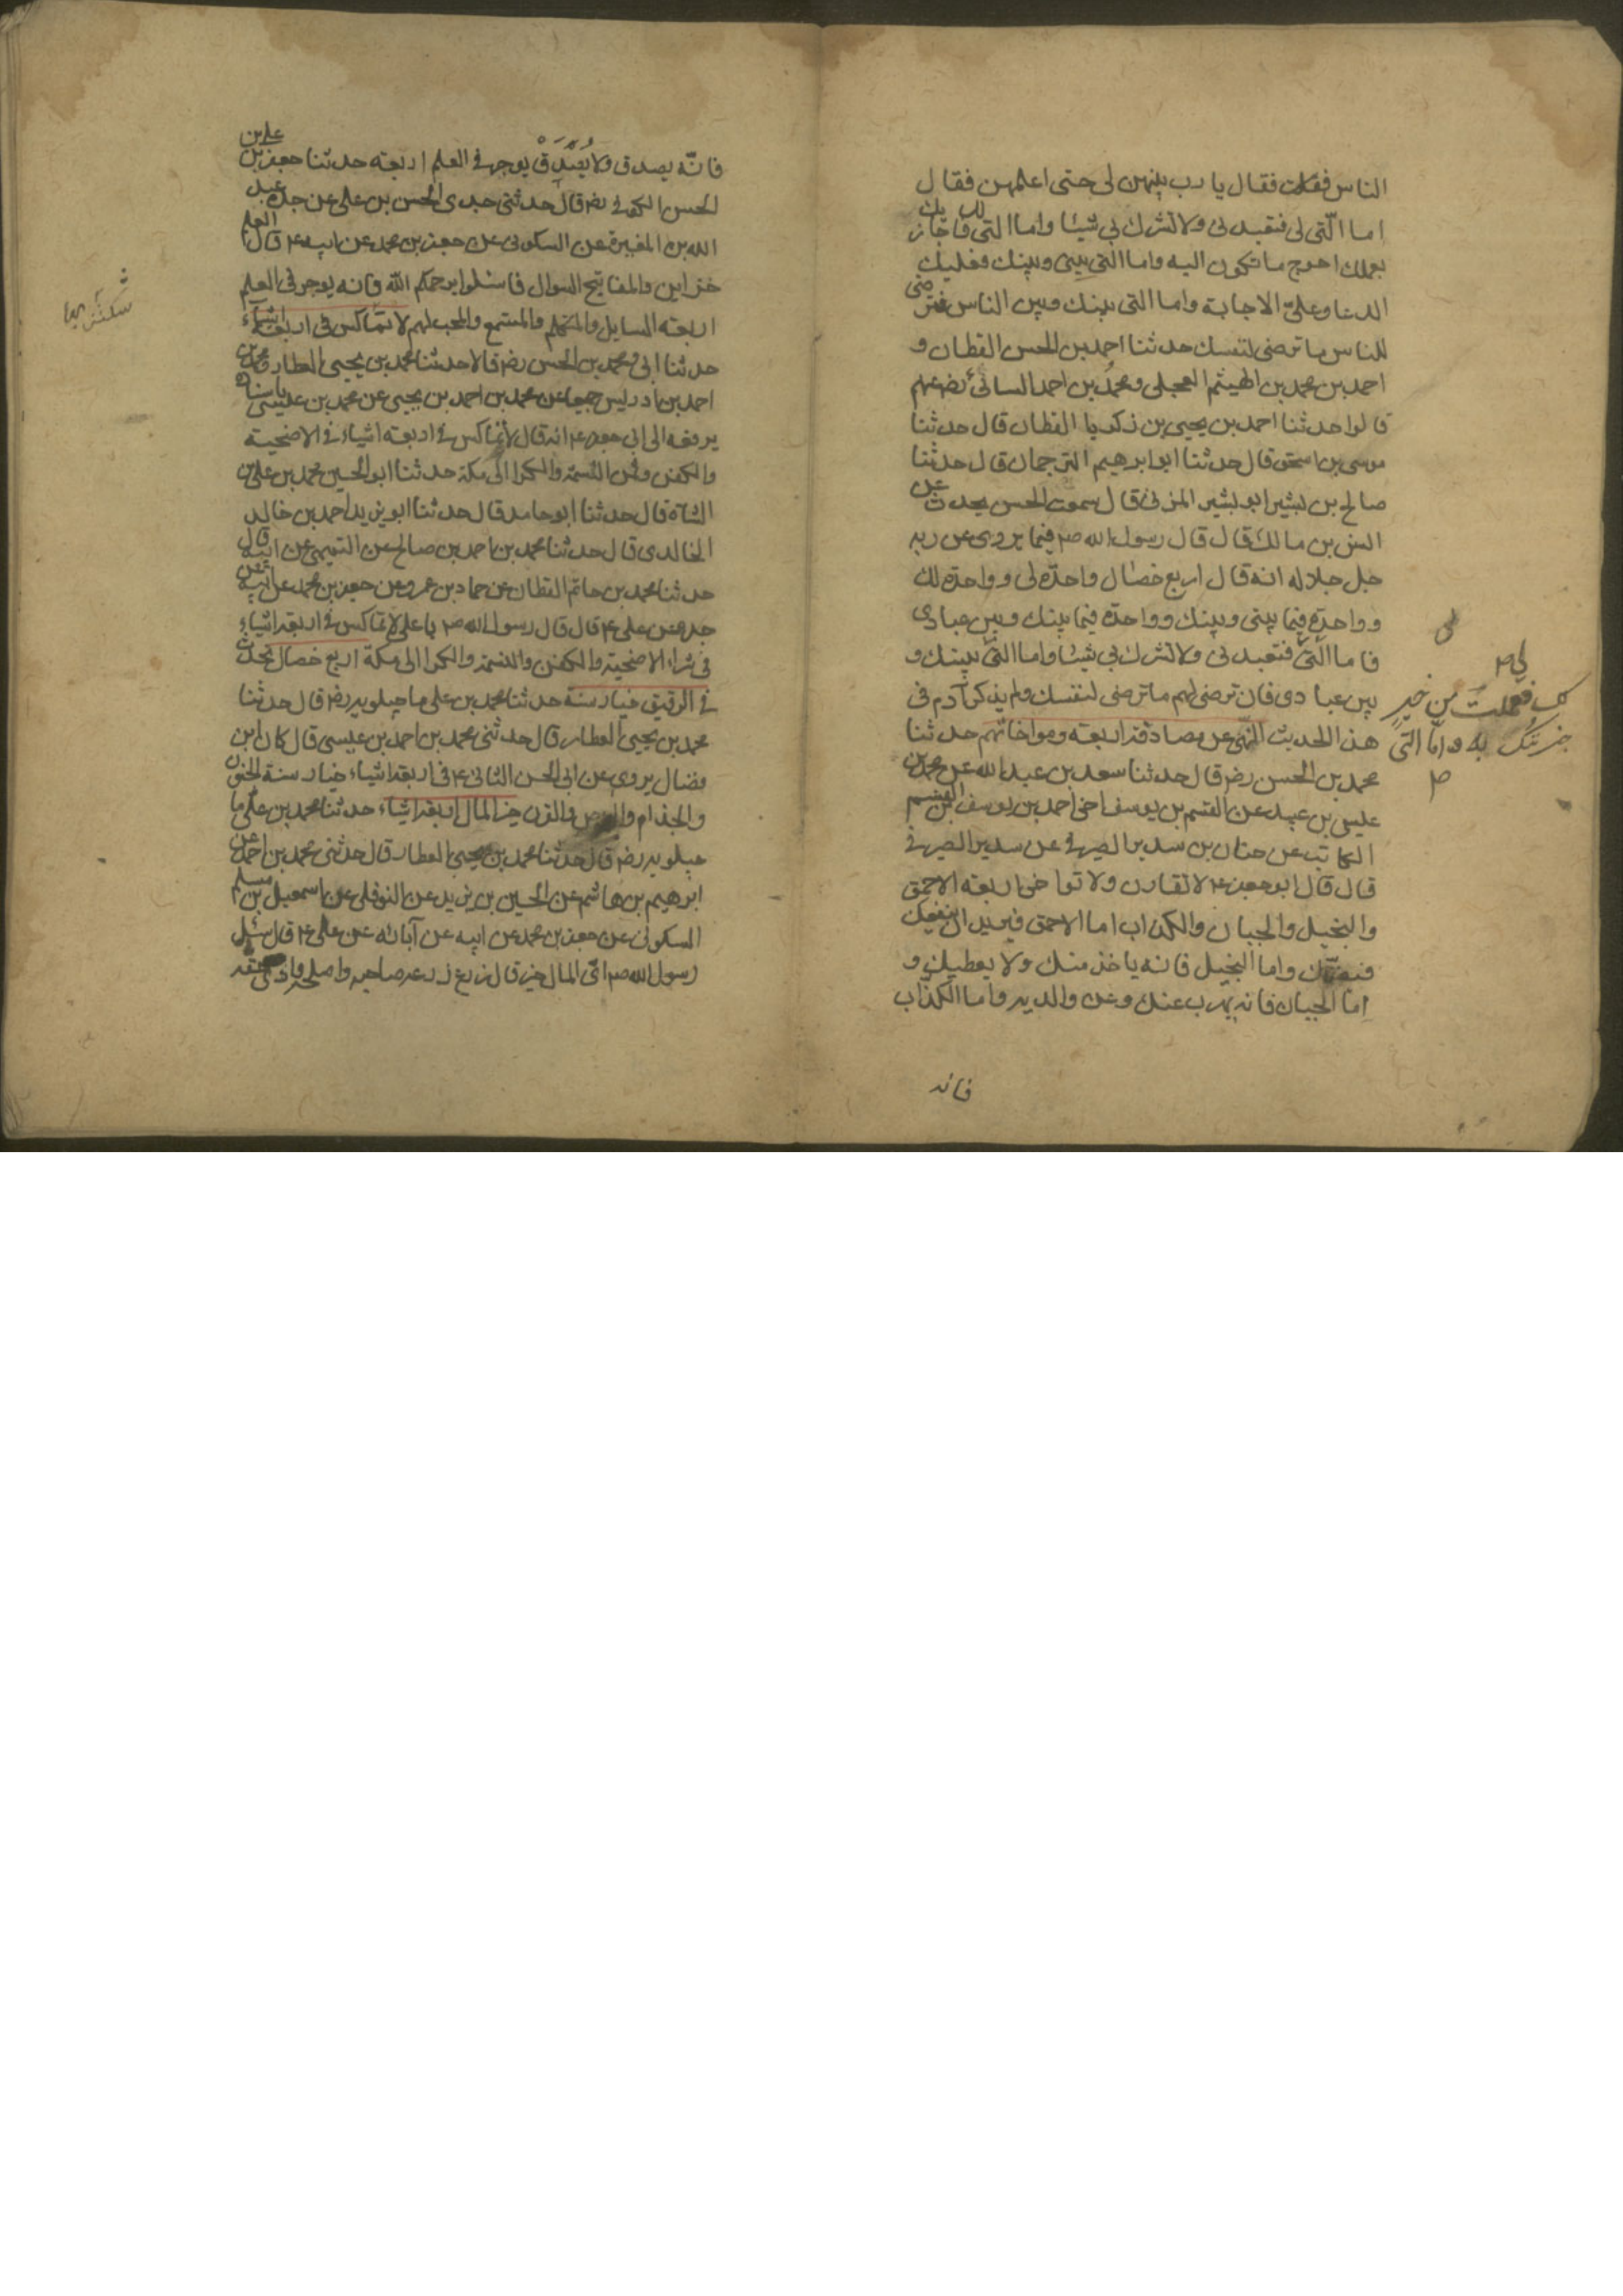 الناس فقلت فقال يا رب بينهن لى حتى اعلمهن فقال
اما التى لى فتعبدنى ولا تشرك بى شيئا واما التى لك فاجازيك
بعملك احوج ما تكون اليه واما التى بينى وبينك فعليك
الدعا وعلىّ الاجابة واما التى بينك وبين الناس فترضى
للناس ما ترضى لنفسك حدثنا احمد بن الحسن القطان و
احمد بن محمد بن الهيثم العجلى ومحمد بن احمد السنائى رضى عنهم
قالوا حدثنا احمد بن يحيى بن زكريا القطان قال حدثنا
موسى بن اسحق قال حدثنا ابو ابرهيم الترجمان قال حدثنا
صالح بن بشير ابو بشير المزنى قال سمعت الحسن يحدث عن
انس بن مالك قال قال رسول الله ص فيما يروى عن ربه
جل جلاله انه قال اربع خصال واحدة لى وواحدة لك
وواحدة فيما بينى وبينك وواحدة فيما بينك وبين عبادى
فاما التى فتعبدنى ولا تشرك بى شيئا واما التى بينك و
بين عبادى فان ترضى لهم ما ترضى لنفسك ولم يذكر آدم فى
هذا الحديث النهى عن مصادقة اربعة ومواخاتهم حدثنا
محمد بن الحسن رضه قال حدثنا سعد بن عبد الله عن محمد بن
عيسى بن عبيد عن القسم بن يوسف اخى احمد بن يوسف بن القسم
الكاتب عن حنان بن سدير الصيرفى عن سدير الصيرفى
قال قال ابو جعفر ع لا تقارن ولا تواخى اربعة الاحمق
والبخيل والجبان والكذاب اما الاحمق فيريد ان ينفعك
فيضرك واما البخيل فانه ياخذ منك ولا يعطيك و
اما الجبان فانه يهرب عنك وعن والديه واما الكذاب
فانه
لى ص
لك فعملت من خير
جزيتك به واما التى
فانّه يصدق ولا يُصَدَّقْ يوجر فى العلم اربعة حدثنا جعفر بن على بن
الحسن الكوفى رضه قال حدثنى جدى الحسن بن على عن جده عبد
الله بن المغيرة عن السكونى عن جعفر بن محمد عن ابيه ع قال العلم
خزاين والمفاتيح السوال فاسئلوا يرحمكم الله فانه يوجر فى العلم
اربعة السايل والمتكلم والمستمع والمحب لهم لا تماكس فى اربعة اشياء
حدثنا ابى ومحمد بن الحسن رضه قالا حدثنا محمد بن يحيى العطار و
احمد بن ادريس جميعا عن محمد بن احمد بن يحيى عن محمد بن عيسى باسناده
يرفعه الى ابى جعفر ع انه قال لا تماكس فى اربعة اشياء فى الاضحية
والكفن وثمن النسمة والكرا الى مكة حدثنا ابو الحسين محمد بن على بن
الشاه قال حدثنا ابو حامد قال حدثنا ابو يزيد احمد بن خالد
الخالدى قال حدثنا محمد بن احمد بن صالح عن التميمى عن ابيه قال
حدثنا محمد بن حاتم القطان عن حماد بن عمرو عن جعفر بن محمد عن ابيه عن
جده عن على ع قال قال رسول الله ص يا على لا تماكس فى اربعة اشياء
فى شراء الاضحية والكفن والنسمة والكرا الى مكة اربع خصال تحدث
فى الرقيق خيار سنة حدثنا محمد بن على ماجيلويه رضه قال حدثنا
محمد بن يحيى العطار قال حدثنى محمد بن احمد بن عيسى قال كان ابن
فضال يروى عن ابى الحسن الثانى ع فى اربعة اشياء خيار سنة الجنون
والجذام والبرص والقرن خير المال اربعة اشياء حدثنا محمد بن على ما
جيلويه رضه قال حدثنا محمد بن يحيى العطار قال حدثنى محمد بن احمد عن
ابرهيم بن هاشم عن الحسين بن يزيد عن النوفلى عن اسمعيل بن مسلم
السكونى عن جعفر بن محمد عن ابيه عن آبائه عن على ع قال سئل
رسول الله ص اىّ المال خير قال زرع زرعه صاحبه واصلحه وادى حقه